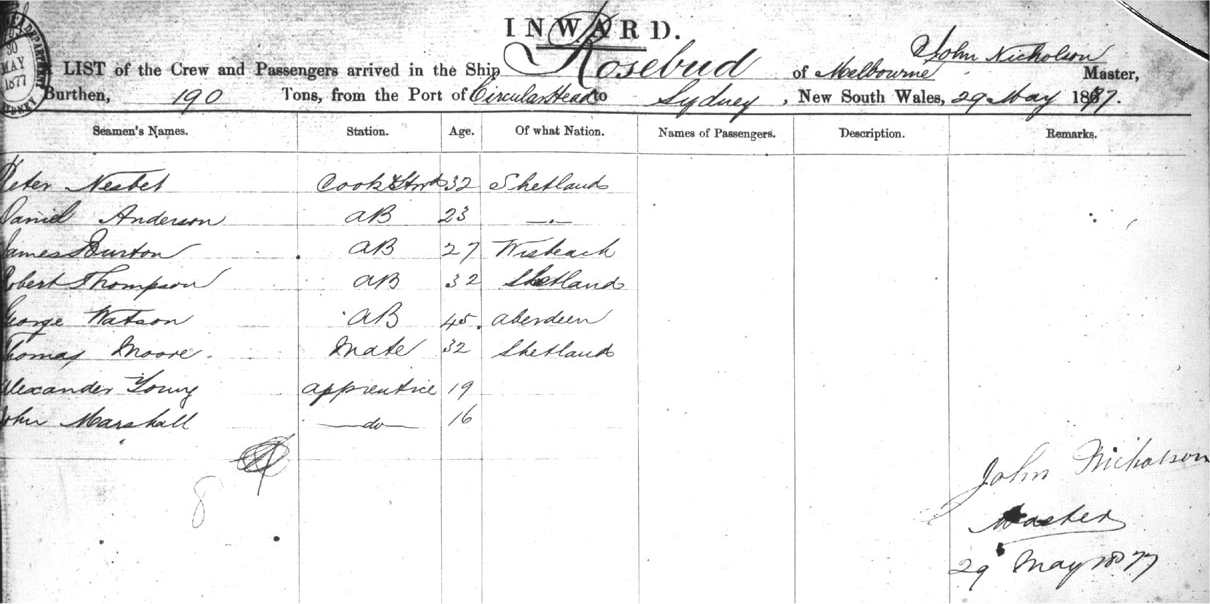 INWARD.
30
MAY
1877
LIST of the Crew and Passengers arrived in the Ship Rosebud of Melbourne John Nicholson Master,
Burthen, 190 Tons, from the Port of Circular Head to Sydney, New South Wales, 29 May 1877.
Seamen's Names. Station. Age. Of what Nation. Names of Passengers. Description. Remarks.
Peter Nesbet Cook & Stwd 32 Shetland
Daniel Anderson AB 23 —„—
James Burton AB 27 Wisbeach
Robert Thompson AB 32 Shetland
George Watson AB 45. Aberdeen
Thomas Moore. Mate 32 Shetland
Alexander Young apprentice 19
John Marshall —do— 16
8
John Nicholson
Master
29 May 1877